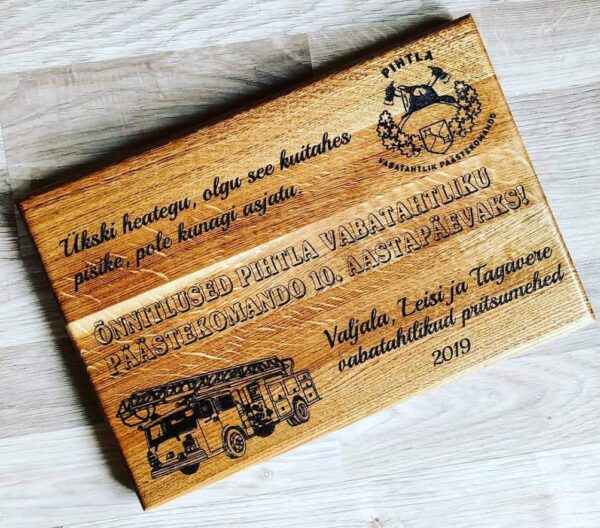 PIHTLA
VABATAHTLIK PÄÄSTEKOMANDO
Ükski heategu, olgu see kuitahes
pisike, pole kunagi asjatu.
ÕNNITLUSED PIHTLA VABATAHTLIKU
PÄÄSTEKOMANDO 10. AASTAPÄEVAKS!
Valjala, Leisi ja Tagavere
vabatahtlikud pritsumehed
2019